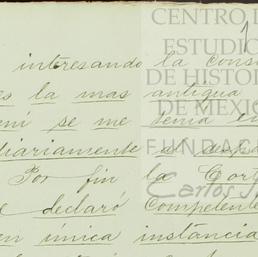 CENTRO D
ESTUDIO
DE HISTOR
DE MÉXIC
FUNDAC
Carlos S
1
interesando la cons
es la mas antigua
se me tenia
diariamente al
Por fin la Cor
declaró competente
en única instancia